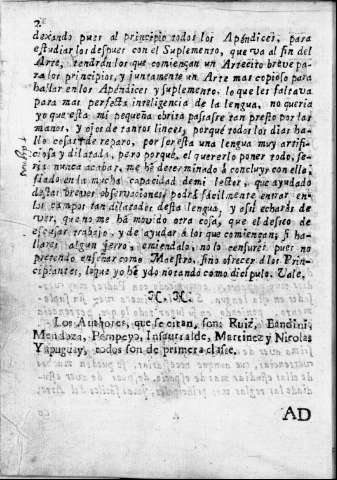 2.
dexando pues al principio todos los Apéndices, para
estudiarlos despues con el Suplemento, que va al fin del
Arte, tendràn los que comiençan un Artecito breve pa-
ra los principios, y juntamente un Arte mas copioso para
hallar en los Apéndices y suplemento, lo que les faltava
para mas perfecta inteligencia de la lengua. no queria
yo que esta mi pequeña obrita passasse tan presto por las
manos, y ojos de tantos linces, porque todos los dias ha-
llo cosas de reparo, por ser esta una lengua muy artifi-
ciosa y dilatada, pero porque, el quererlo poner todo, se-
ria nunca acabar, me hè determinado à concluyr con ello,
fiado en la mucha capacidad de mi lector, que ayudado
destas breves observaciones, podrà fácilmente entrar en
los campos tan dilatados desta lengua, y assi echaràs de
ver, que no me hà movido otra cosa, que el deseo de
escusar trabajo, y de ayudar à los que comiençan; si ha-
llares algun yerro, emiendalo, no lo censures pues no
pretendo enseñar como Maestro, sino ofrecer à los Prin-
cipiantes, lo que yo hè ydo notando como dicipulo. Vale,
Los Authores, que se citan, son: Ruiz, Bandini,
Mendoza, Pompeyo, Insaurralde, Martinez y Nicolas
Yapuguay, todos son de primera classe.
AD